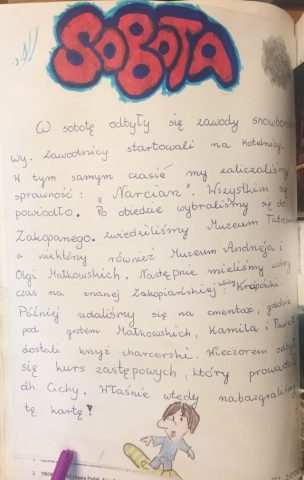 SOBOTA
W sobotę odbyły się zawody snowboro
wy. Zawodnicy startowali na kotelnicy.
W tym samym czasie my zaliczaliśmy
sprawność: "Narciarz". Wszystkim się
powiodło. Po obiedzie wybraliśmy się do
Zakopanego. Zwiedziliśmy Muzeum Tatrzań
a niektóry również Muzeum Andrzeja i
Olgi Małkowskich. Następnie mieliśmy wolny
czas na znanej Zakopiańskiej ulicy Krupówki
Później udaliśmy się na cmentarz, gdzie
pod grobem Małkowskich, Kamila i Paweł
dostali krzyż charcerski. Wieczorem odbył
się kurs zastępowych, który prowadził
dh Cichy. Właśnie wtedy nabazgraliśmy
tę kartę!